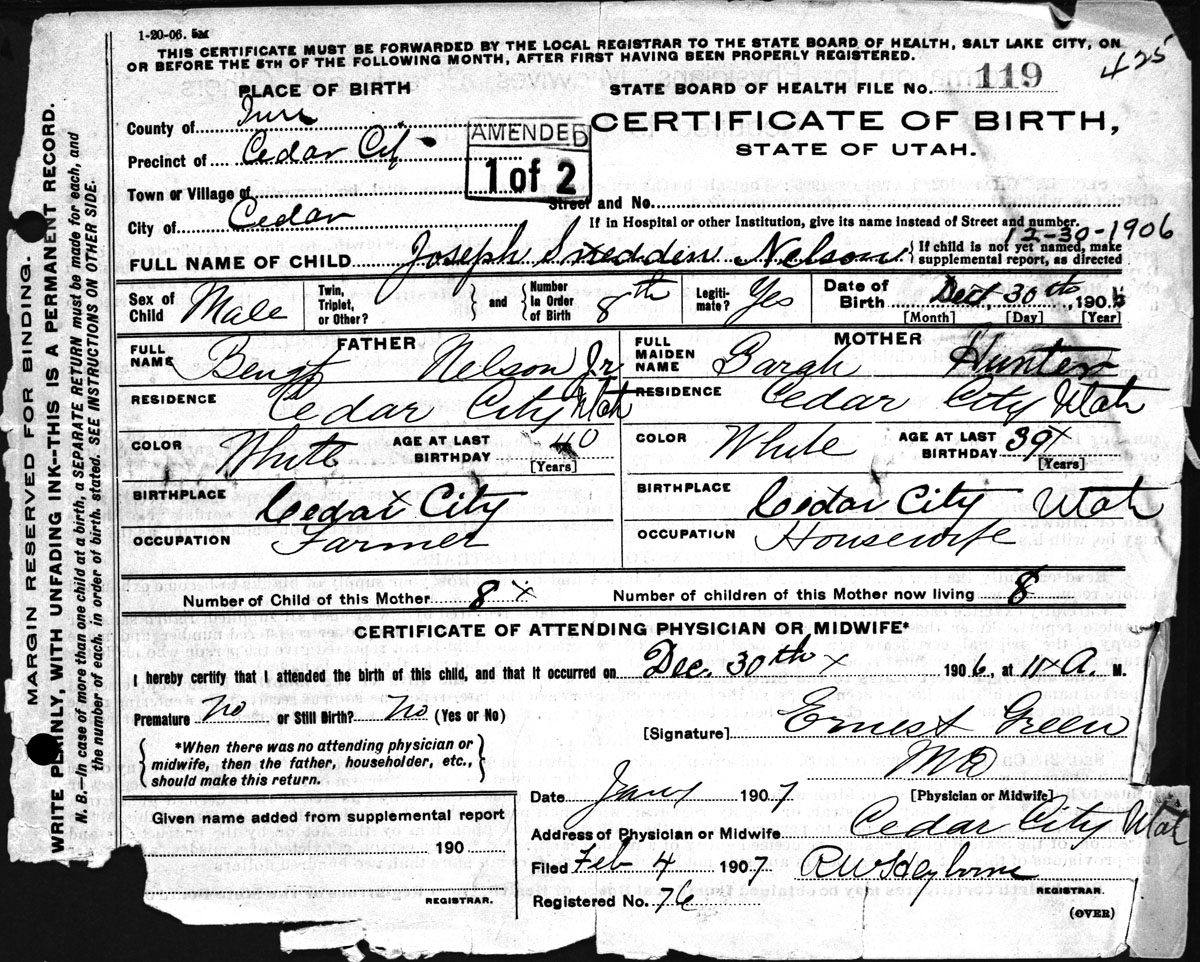 1-20-06. 5M
THIS CERTIFICATE MUST BE FORWARDED BY THE LOCAL REGISTRAR TO THE STATE BOARD OF HEALTH, SALT LAKE CITY, ON
OR BEFORE THE 5TH OF THE FOLLOWING MONTH, AFTER FIRST HAVING BEEN PROPERLY REGISTERED.
425
PLACE OF BIRTH
STATE BOARD OF HEALTH FILE No. 119
County of
AMENDED
1 of 2
CERTIFICATE OF BIRTH,
STATE OF UTAH.
Precinct of Cedar City
Town or Village of
Street and No.
City of Cedar
If in Hospital or other Institution, give its name instead of Street and number.
12-30-1906
FULL NAME OF CHILD Joseph Snedden Nelson
{ If child is not yet named, make
supplemental report, as directed
Sex of Child Male
Twin, Triplet, or Other? } and { Number In Order of Birth 8th
Legitimate? Yes
Date of Birth Dec 30th, 1906
[Month] [Day] [Year]
FATHER
FULL NAME Bengt Nelson Jr
MOTHER
FULL MAIDEN NAME Sarah Hunter
RESIDENCE Cedar City Utah
RESIDENCE Cedar City Utah
COLOR White AGE AT LAST BIRTHDAY 40 [Years]
COLOR White AGE AT LAST BIRTHDAY 39 x [Years]
BIRTHPLACE Cedar City
BIRTHPLACE Cedar City Utah
OCCUPATION Farmer
OCCUPATION Housewife
Number of Child of this Mother 8 x Number of children of this Mother now living 8
CERTIFICATE OF ATTENDING PHYSICIAN OR MIDWIFE*
I hereby certify that I attended the birth of this child, and that it occurred on Dec. 30th x 1906, at 11 A. M.
Premature No or Still Birth? No (Yes or No)
[Signature] Ernest Green
MD
{ *When there was no attending physician or
midwife, then the father, householder, etc.,
should make this return. }
Date Jany 1907
[Physician or Midwife]
Given name added from supplemental report
190
REGISTRAR.
Address of Physician or Midwife Cedar City Utah
Filed Feb 4 1907 R W Heyborne
REGISTRAR.
Registered No. 76
(OVER)
MARGIN RESERVED FOR BINDING.
WRITE PLAINLY, WITH UNFADING INK--THIS IS A PERMANENT RECORD.
N. B.—In case of more than one child at a birth, a SEPARATE RETURN must be made for each, and
the number of each, in order of birth, stated. SEE INSTRUCTIONS ON OTHER SIDE.